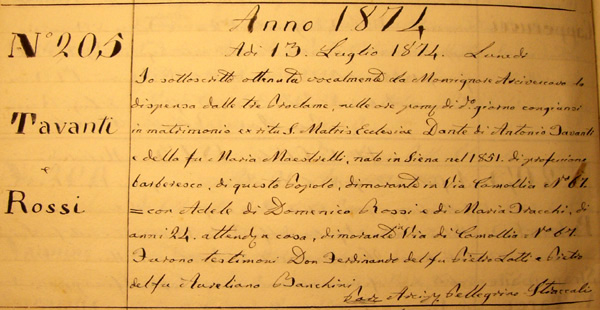 Anno 1874
Nº 205
Adi 13. Luglio 1874. Lunedì
Io sottoscritto ottenuta vocalmente da Monsignore Arcivescovo la
dispensa dalle tre Proclame, nelle ore pomj di do. giorno congiunsi
Tavanti
in matrimonio ex ritu S. Matris Ecclesiae Dante di Antonio Tavanti
e della fu Maria Maestrelli, nato in Siena nel 1851. di professione
e
barberesco, di questo Popolo, dimorante in Via Camollia Nº 61.
Rossi
= con Adele di Domenico Rossi e di Maria Fracchi, di
anni 24. attendte a casa, dimorante Via di Camollia Nº 61.
Furono testimoni Don Ferdinando del fu Pietro Lotti e Pietro
del fu Aureliano Bianchini
Arcipe Pellegrino